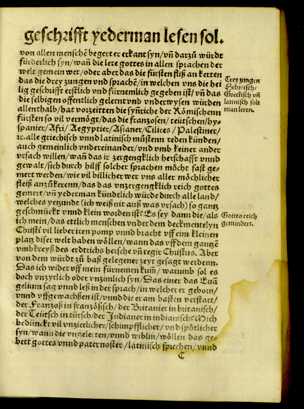 geschrifft yederman lesen sol.
von allen menschē begert er erkant syn/ vn̄ darzů würdt
fürderlich syn/ wan̄ die lere gottes in allen sprachen der
welt gemein wer/ oder aber das die fürsten fleiß an kerten
das die drey zungen vnd sprachē/ in welchen vns die hei
lig geschrifft erstlich vnd fürnemlich gegeben ist/ vn̄ das
die selbigen offentlich gelernt vnd vnderwysen würden
allenthalb/ hat vorzeitten die syn̄riche der Römischenn
fürsten so vil vermögt/ das die franzosen/ teütschen/ hy=
spanier/ Afri/ Aegyptier/ Asianer/ Cilices/ Palestiner/
alle griechisch vnnd latinisch müstenn reden künden/
auch gemeinlich vndereinander/ vnd vmb keiner andre
vrsach willen/ wan̄ das ir zergengklich herschafft vnnd
gewalt/ sich durch hilff solcher sprachen möcht fast ge=
mert werden/ wie vil billicher wer vns aller möchlichster
fleiß anzůkeren/ das das vnzergengklich reich gottes
gemert vn̄ yederman kündtlich würde durch alle land/
welches yezunde (ich weiß nit auß was vrsach) so gang
geschmückt vnnd klein worden ist? Es sey dann die/ als
ich mein/ das etlich menschen vnder dem deckmentelyn
Christi vil lieber iren pomp vnnd bracht vff eim kleinen
plaz diser welt haben wöllen/ wann das vff dem gangē
vmbkreyß des erdtrichs herschē vn̄ regir Christus. Aber
von dem würdt zů baß gelegener zeyt gesagt werdenn.
Das ich wider vff mein fürnemen kum̄/ warumb sol es
doch vnzyrlich oder vnzimlich syn? Das einer das Euā
gelium sag vnnd leß in der sprach/ in welcher er geborn/
vnnd vffgewachsen ist/ vnnd die er am basten verstat?
der Franzoß in französisch/ der Britanier in britanisch/
der Teütsch in tütsch/ der Indianer in indianisch? Mich
bedünckt vil vnzierlicher/ schimpfflicher/ vnd spötlicher
syn/ wann die vngelerten/ vnnd wiblin/ wöllen das ge=
bett gottes vnnd paternoster/ latinisch sprechen/ vnnd
C
Drey zungen
Hebreisch/
Griechisch vn̄
latinisch solt
man leren.
Gottes reich
gemindert.